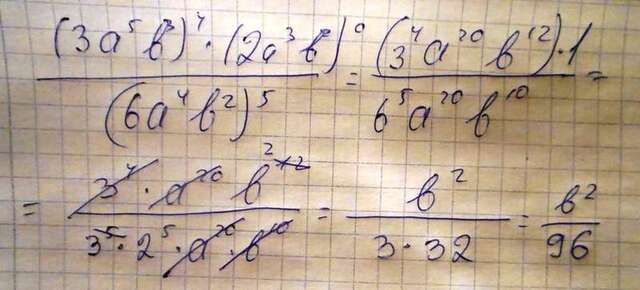 (3a⁵b³)⁴ · (2a³b)⁰ / (6a⁴b²)⁵ = (3⁴a²⁰b¹²)·1 / 6⁵a²⁰b¹⁰ =
= 3⁴ · a²⁰ b¹² ² / 3⁵ · 2⁵ · a²⁰ · b¹⁰ = b² / 3·32 = b²/96